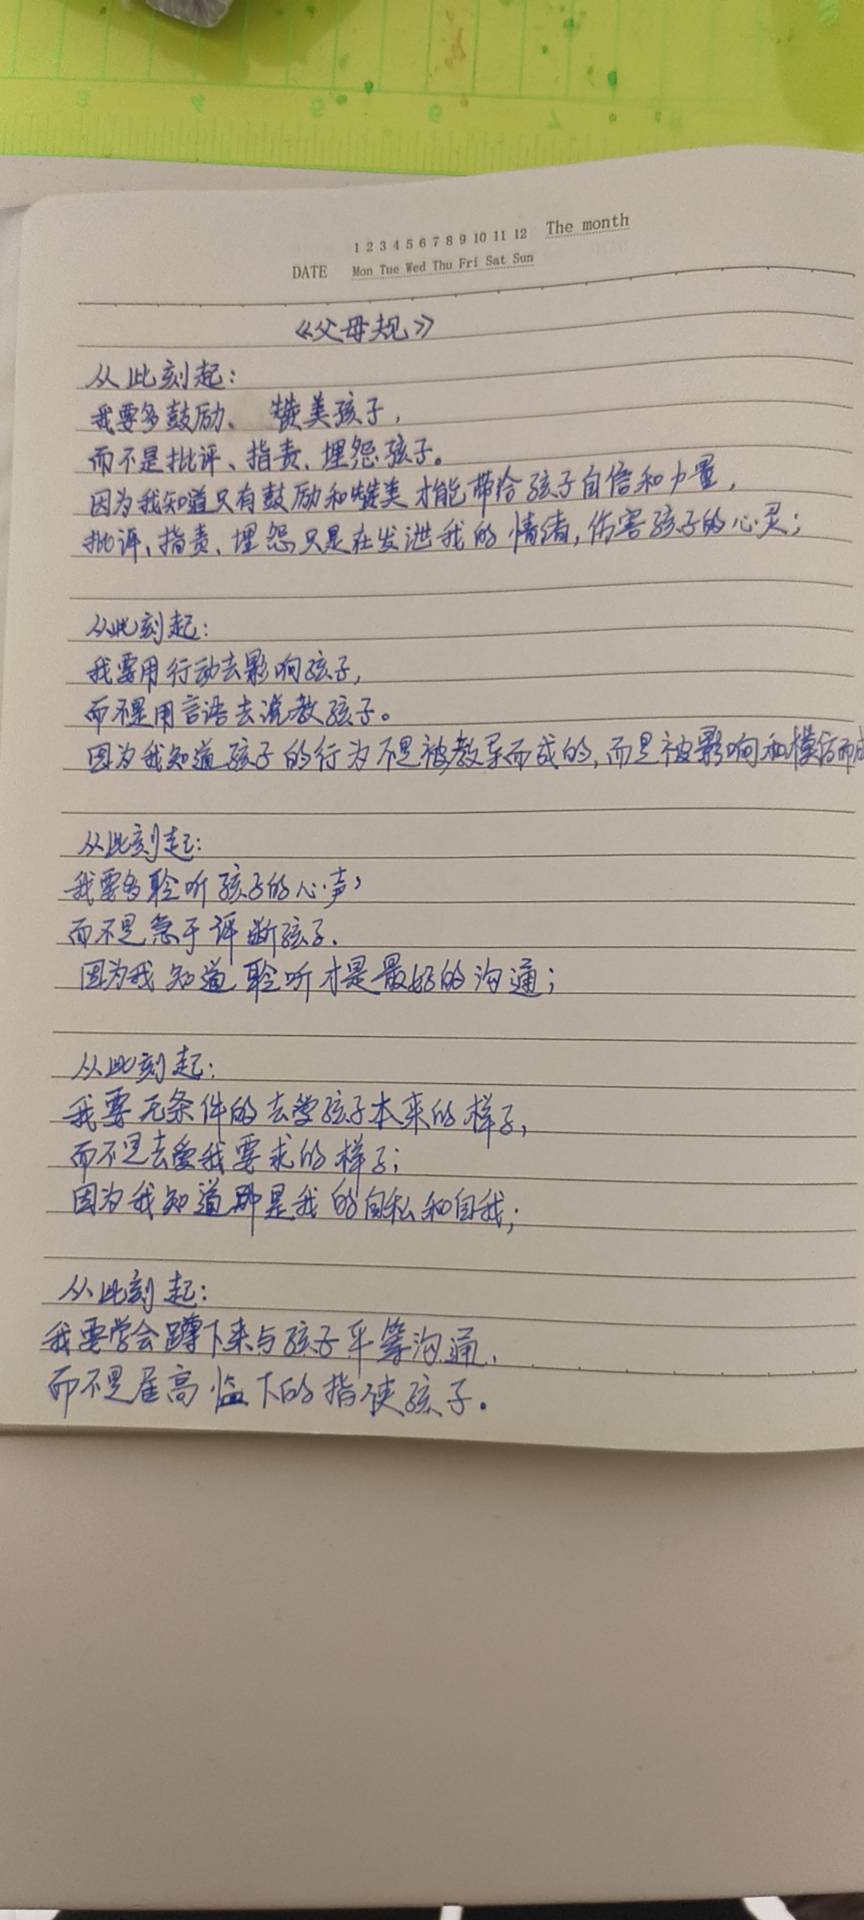 3 4 5 6 7 8
1 2 3 4 5 6 7 8 9 10 11 12 The month
DATE Mon Tue Wed Thu Fri Sat Sun
《父母规》
从此刻起:
我要多鼓励、赞美孩子,
而不是批评、指责、埋怨孩子。
因为我知道只有鼓励和赞美才能带给孩子自信和力量,
批评、指责、埋怨只是在发泄我的情绪,伤害孩子的心灵;
从此刻起:
我要用行动去影响孩子,
而不是用言语去说教孩子。
因为我知道孩子的行为不是被教导而成的,而是被影响和模仿而成
从此刻起:
我要多聆听孩子的心声,
而不是急于评断孩子.
因为我知道聆听才是最好的沟通;
从此刻起:
我要无条件的去 孩子本来的样子,
而不是去爱我要求的样子;
因为我知道那是我的自私和自我;
从此刻起:
我要学会蹲下来与孩子平等沟通,
而不是居高临下的指使孩子。